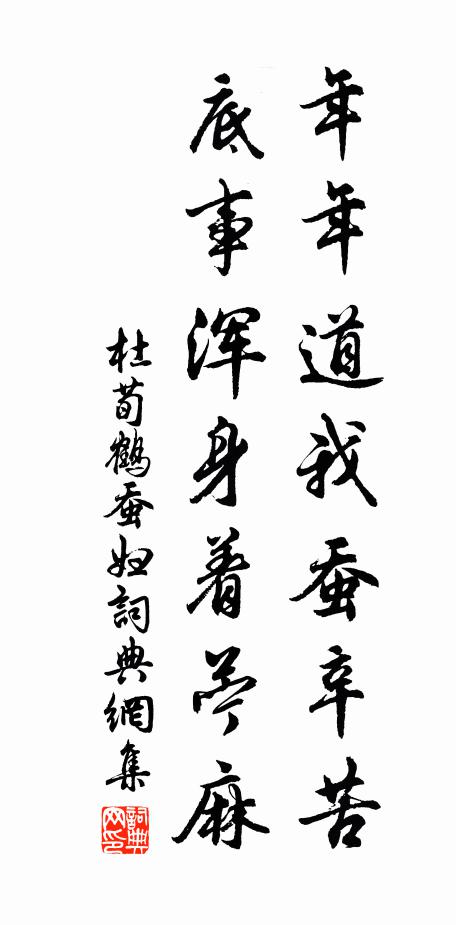 年年道我蚕辛苦
底事浑身着苎麻
杜荀鶴蚕妇詞典網集
詞典网印